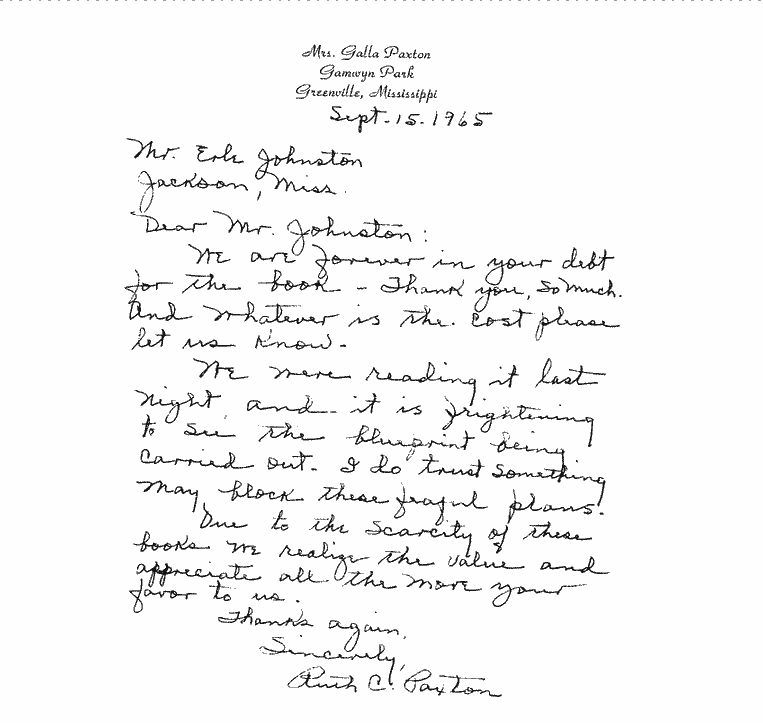 Mrs. Galla Paxton
Gamwyn Park
Greenville, Mississippi
Sept. 15. 1965
Mr. Erle Johnston
Jackson, Miss.
Dear Mr. Johnston:
We are forever in your debt
for the book - Thank you, so much.
And whatever is the cost please
let us know.
We were reading it last
night and it is frightening
to see the blueprint being
carried out. I do trust something
may block these plans.
Due to the scarcity of these
books we realize the value and
appreciate all the more your
favor to us.
Thanks again,
Sincerely,
Ruth C. Paxton